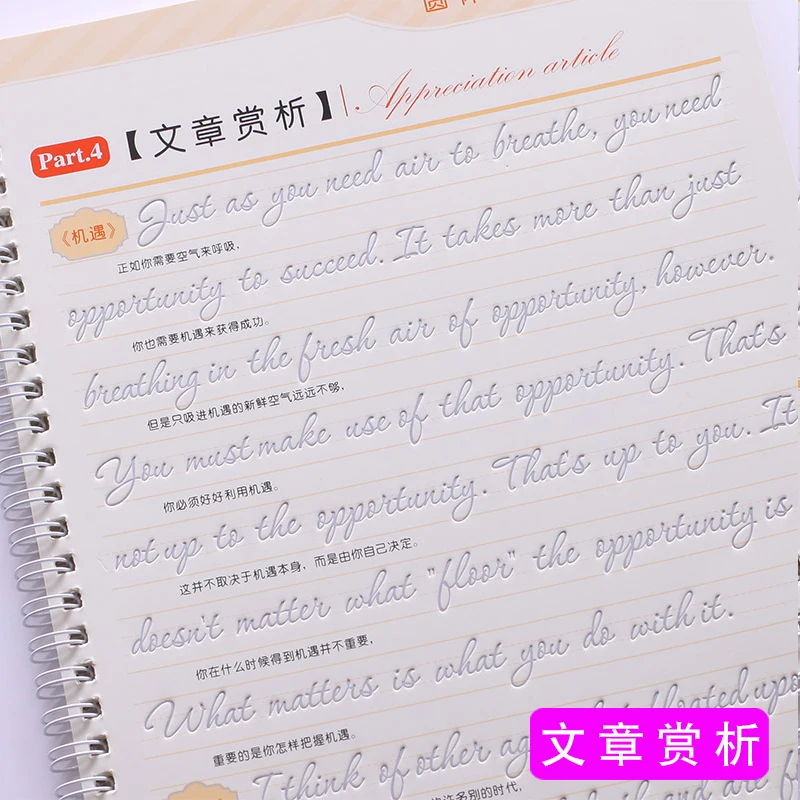 Part.4 【文章赏析】 Appreciation article
《机遇》 Just as you need air to breathe, you need
正如你需要空气来呼吸，
opportunity to succeed. It takes more than just
你也需要机遇来获得成功。
breathing in the fresh air of opportunity, however.
但是只吸进机遇的新鲜空气远远不够，
You must make use of that opportunity. That's
你必须好好利用机遇。
not up to the opportunity. That's up to you. It
这并不取决于机遇本身，而是由你自己决定。
doesn't matter what "floor" the opportunity is
你在什么时候得到机遇并不重要，
What matters is what you do with it.
重要的是你怎样把握机遇。
I think of other floated upo
名别的时代，
and are f
文章赏析